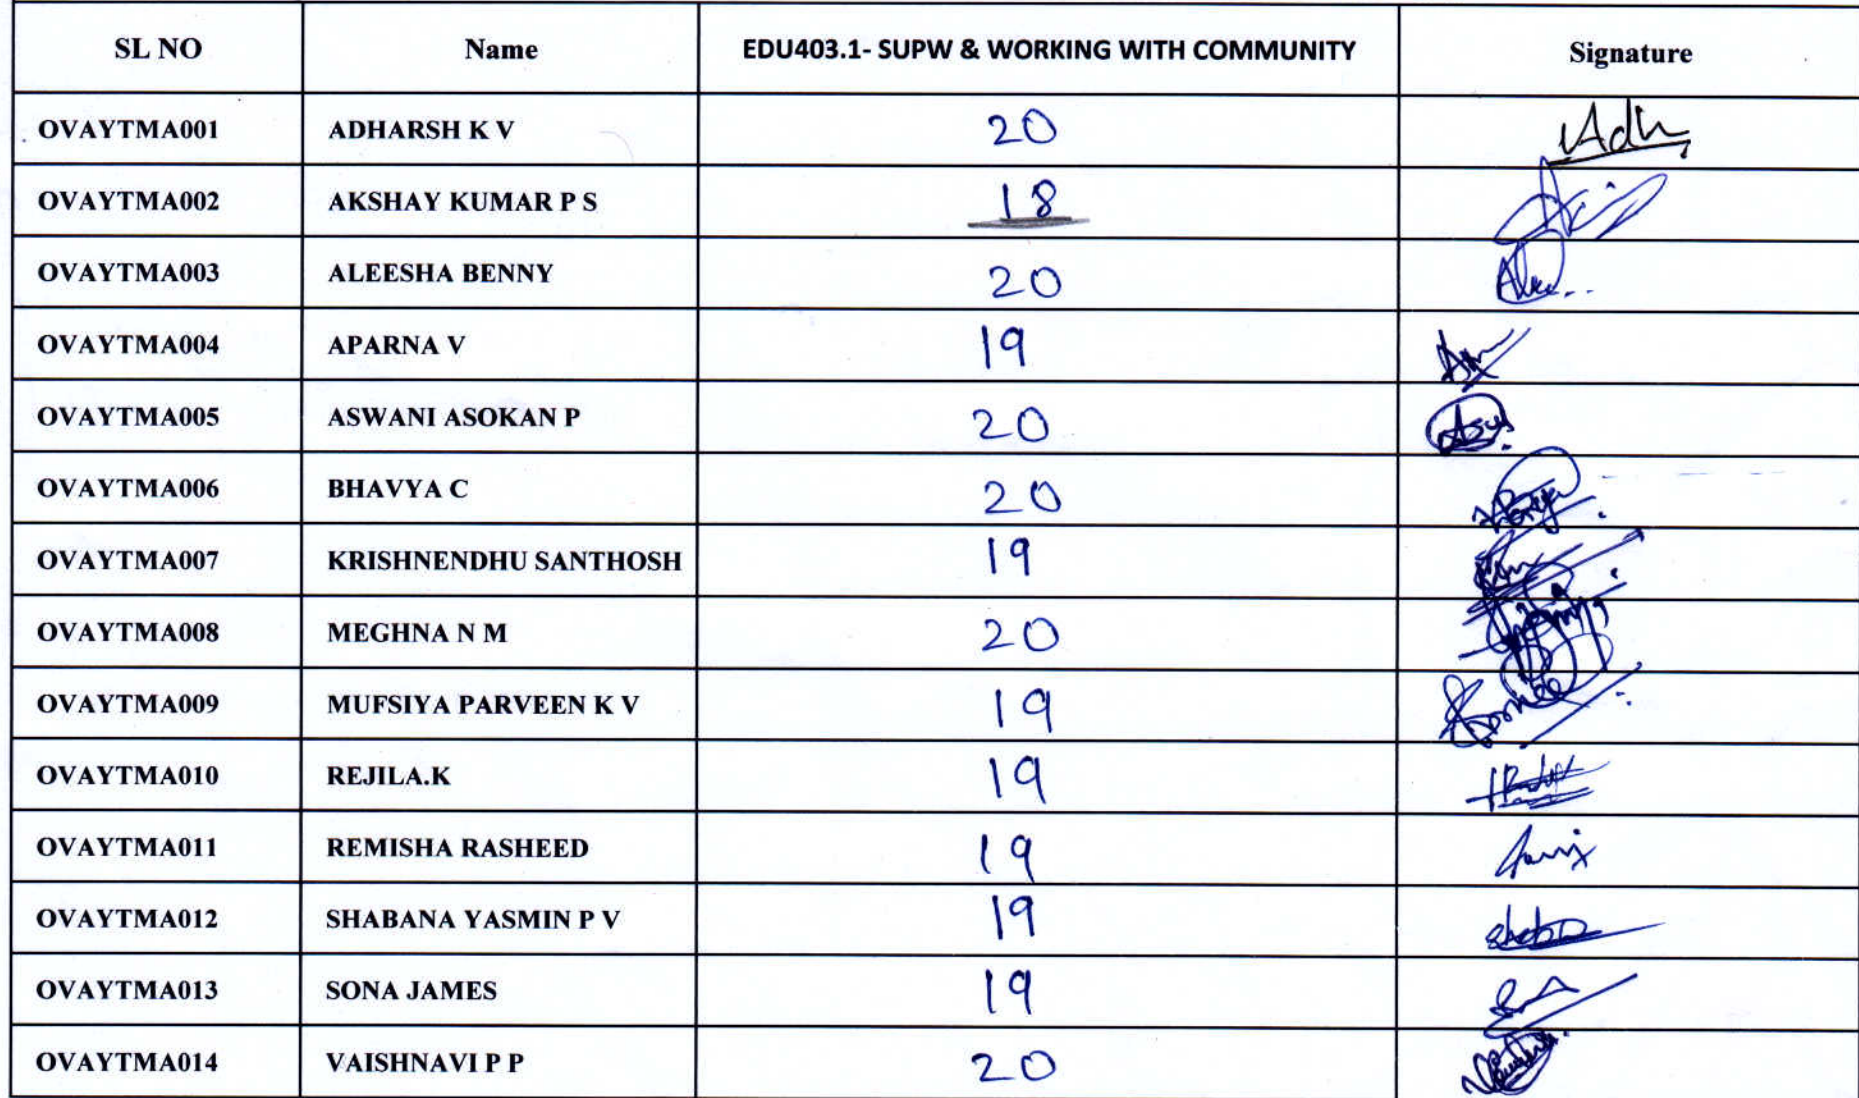 SL NO Name EDU403.1- SUPW & WORKING WITH COMMUNITY Signature
OVAYTMA001 ADHARSH K V 20 Adh
OVAYTMA002 AKSHAY KUMAR P S 18
OVAYTMA003 ALEESHA BENNY 20
OVAYTMA004 APARNA V 19
OVAYTMA005 ASWANI ASOKAN P 20
OVAYTMA006 BHAVYA C 20
OVAYTMA007 KRISHNENDHU SANTHOSH 19
OVAYTMA008 MEGHNA N M 20
OVAYTMA009 MUFSIYA PARVEEN K V 19
OVAYTMA010 REJILA.K 19
OVAYTMA011 REMISHA RASHEED 19
OVAYTMA012 SHABANA YASMIN P V 19
OVAYTMA013 SONA JAMES 19
OVAYTMA014 VAISHNAVI P P 20